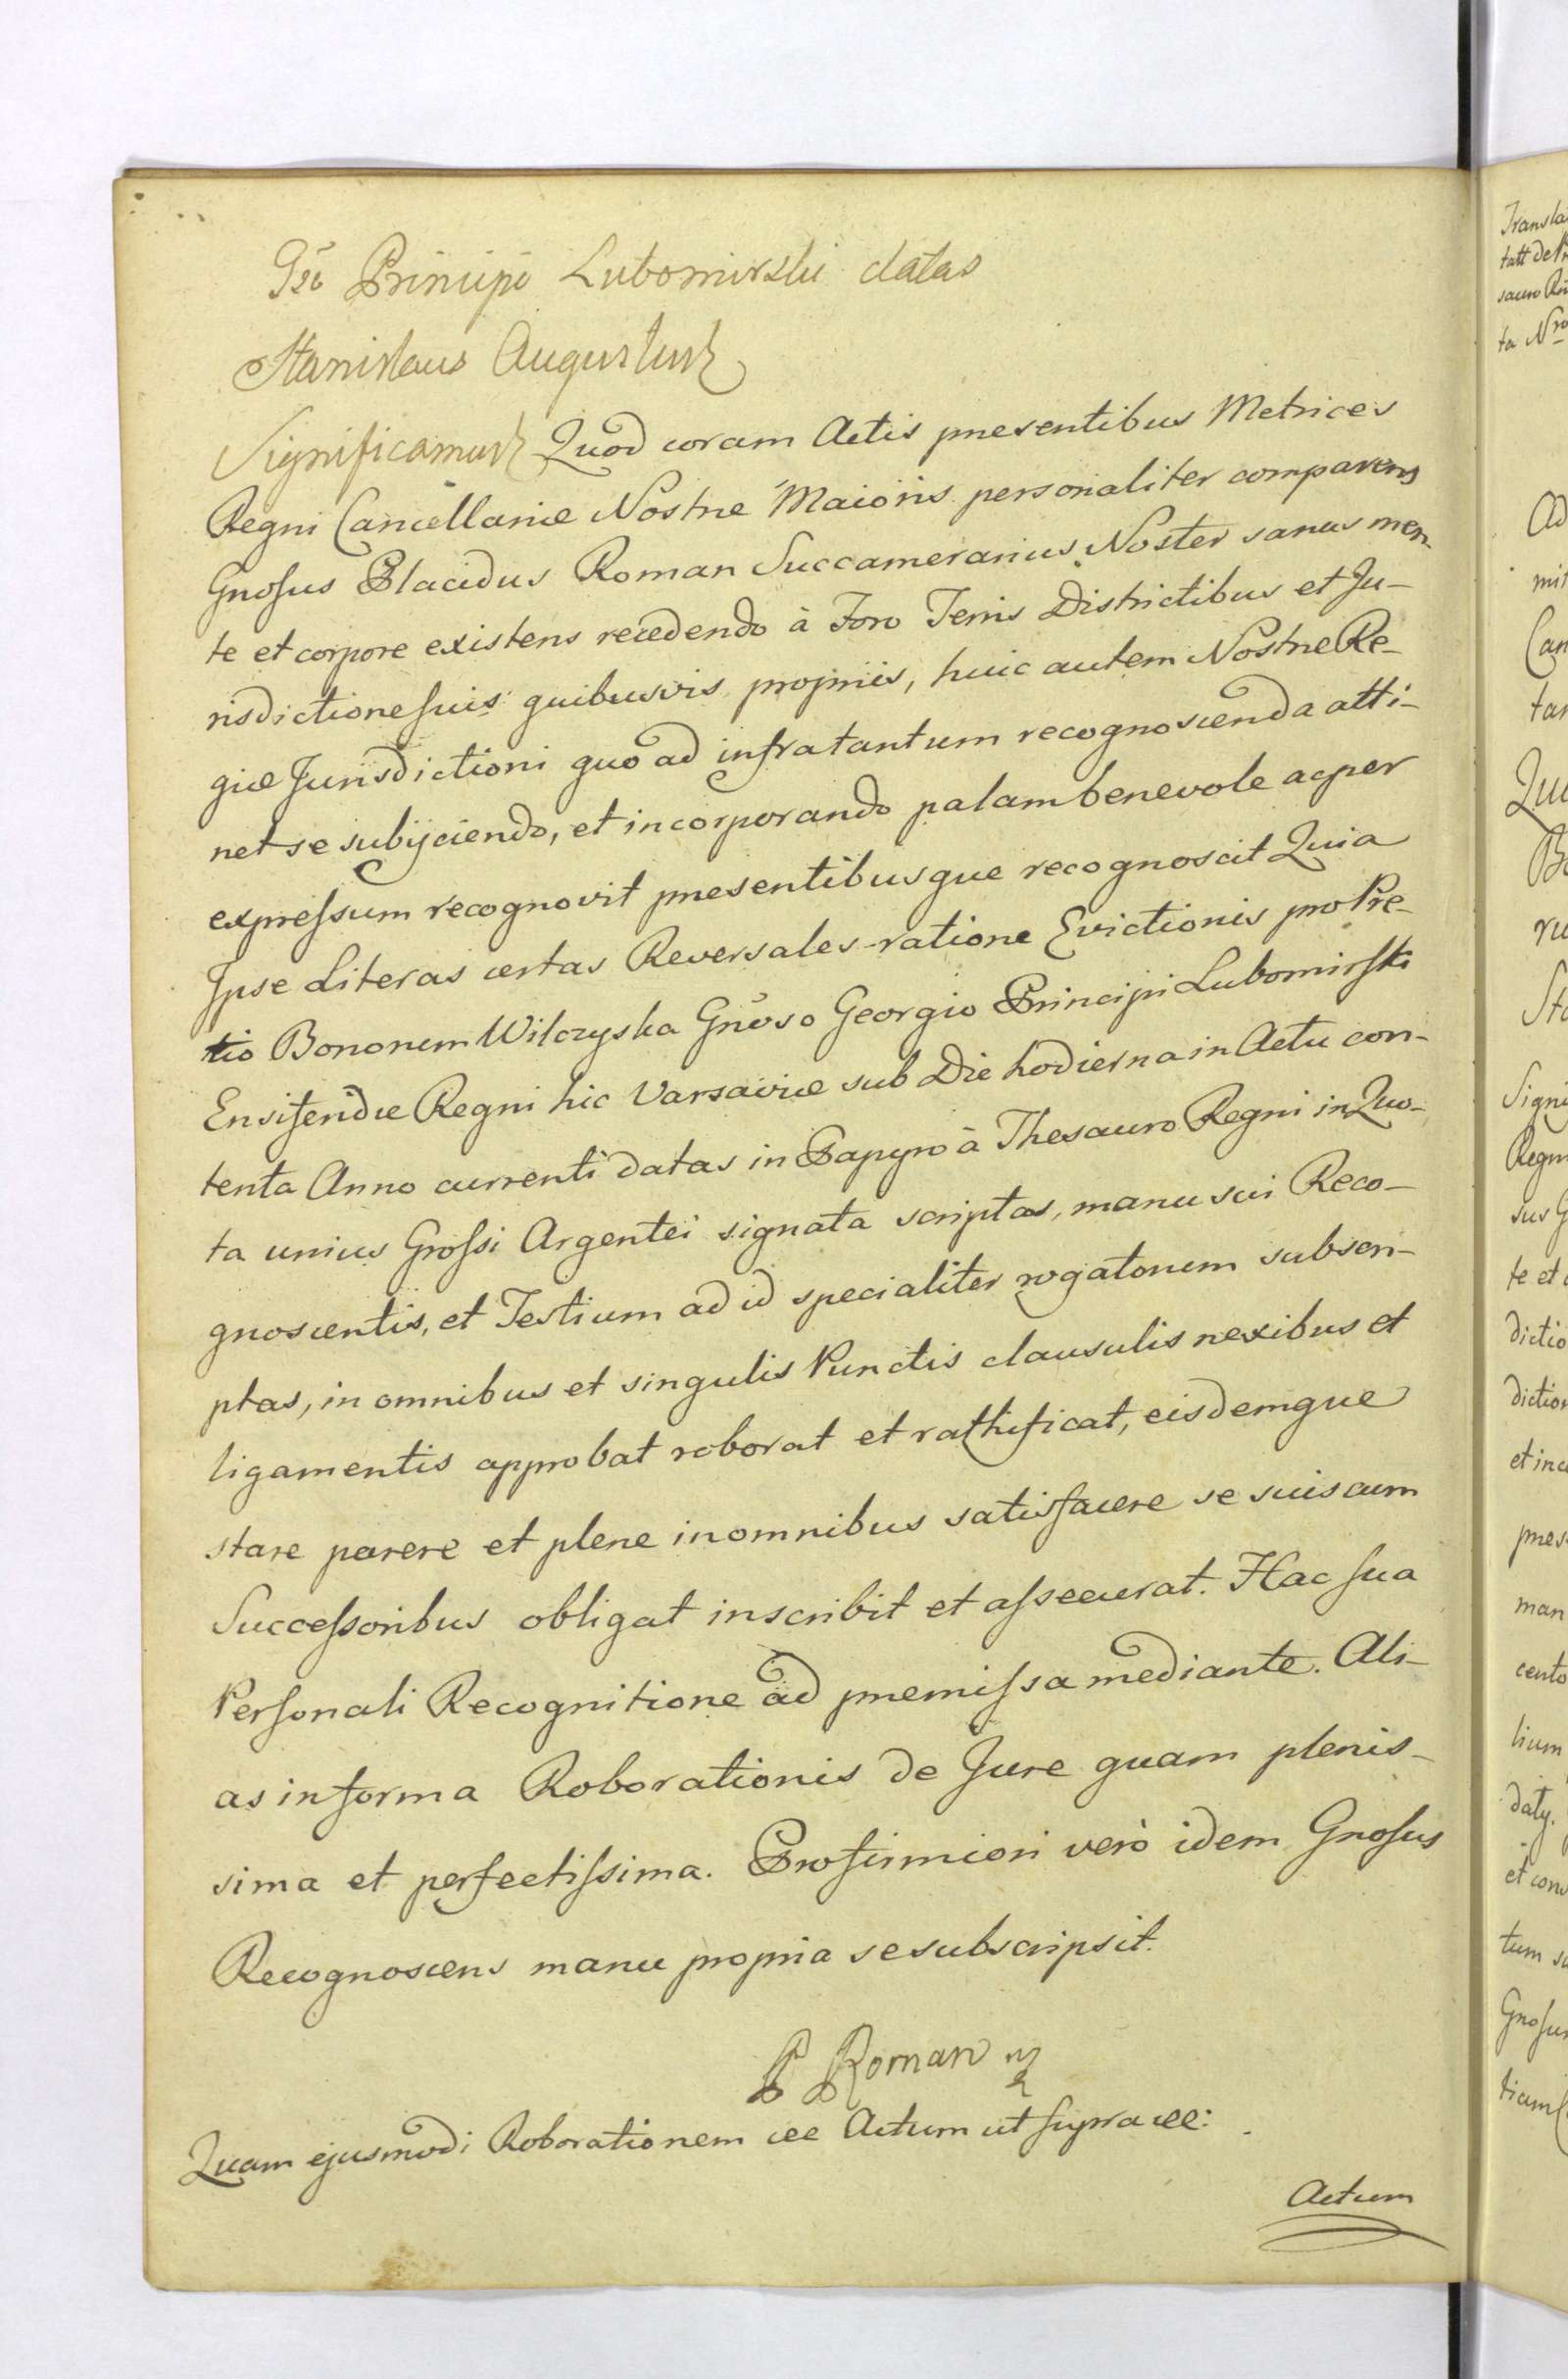 Gso Principi Lubomirski datas
Stanislaus Augustus
Significamus Quod coram Actis præsentibus Metrices
Regni Cancellariæ Nostræ Maioris personaliter comparens
Gnosus Placidus Roman Succamerarius Noster sanus men-
te et corpore existens recedendo à Foro Terris Districtibus et Ju-
risdictione suis quibusvis propriis, huic autem Nostræ Re-
giæ Jurisdictioni quo ad infra tantum recognoscenda atti-
net se subijciendo, et incorporando palam benevole ac per
expressum recognovit præsentibusque recognoscit Quia
Ipse Literas certas Reversales ratione Evictionis pro Præ-
tio Bonorum Wilczyska Gnoso Georgio Principi Lubomirski
Ensiferidæ Regni hic Varsaviæ sub Die hodierna in Actu con-
tenta Anno currenti datas in Papyro à Thesauro Regni in Quo-
ta unius Grossi Argentei signata scriptas, manu sui Reco-
gnoscentis, et Testium ad id specialiter rogatorum subscri-
ptas, in omnibus et singulis Punctis clausulis nexibus et
ligamentis approbat roborat et rathificat, eisdemque
stare parere et plene in omnibus satisfacere se suis cum
Successoribus obligat inscribit et assecurat. Hac sua
Personali Recognitione ad præmissa mediante. Ali-
as in forma Roborationis de Jure quam plenis-
sima et perfectissima. Pro firmiori verò idem Gnosus
Recognoscens manu propria se subscripsit.
P Roman
Quam ejusmodi Roborationem &c Actum ut supra &c:
Actum
Ad
Can
Signi
Regn
sus G
te et
dictio
diction
man
cento
lium
daty.
et con
Gnosus